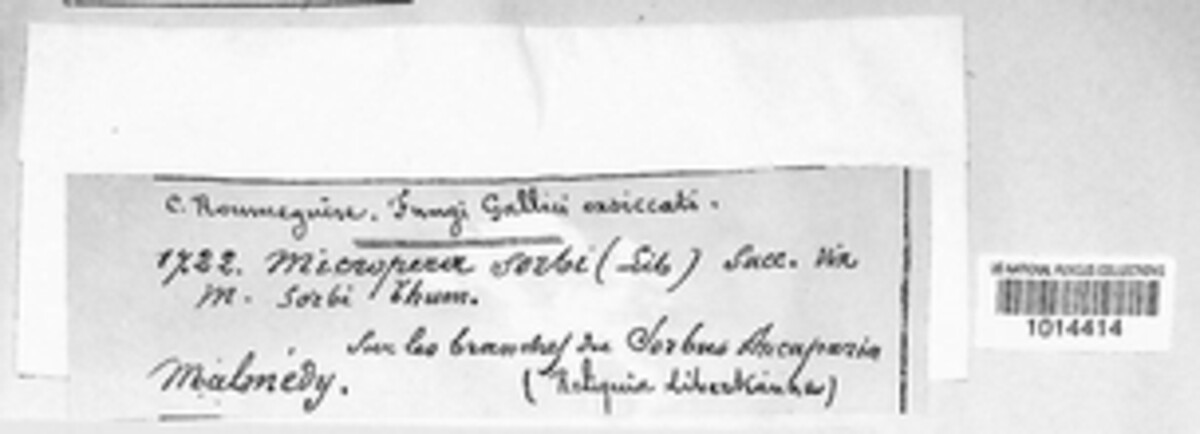 C. Roumeguère. Fungi Gallici exsiccati.
1722. Micropera sorbi (Lib) Sacc. Vix
M. Sorbi Thum.
Sur les branches du Sorbus Aucaparia
Malmédy. (Reliquia Libertianae)
US NATIONAL FUNGUS COLLECTIONS
1014414